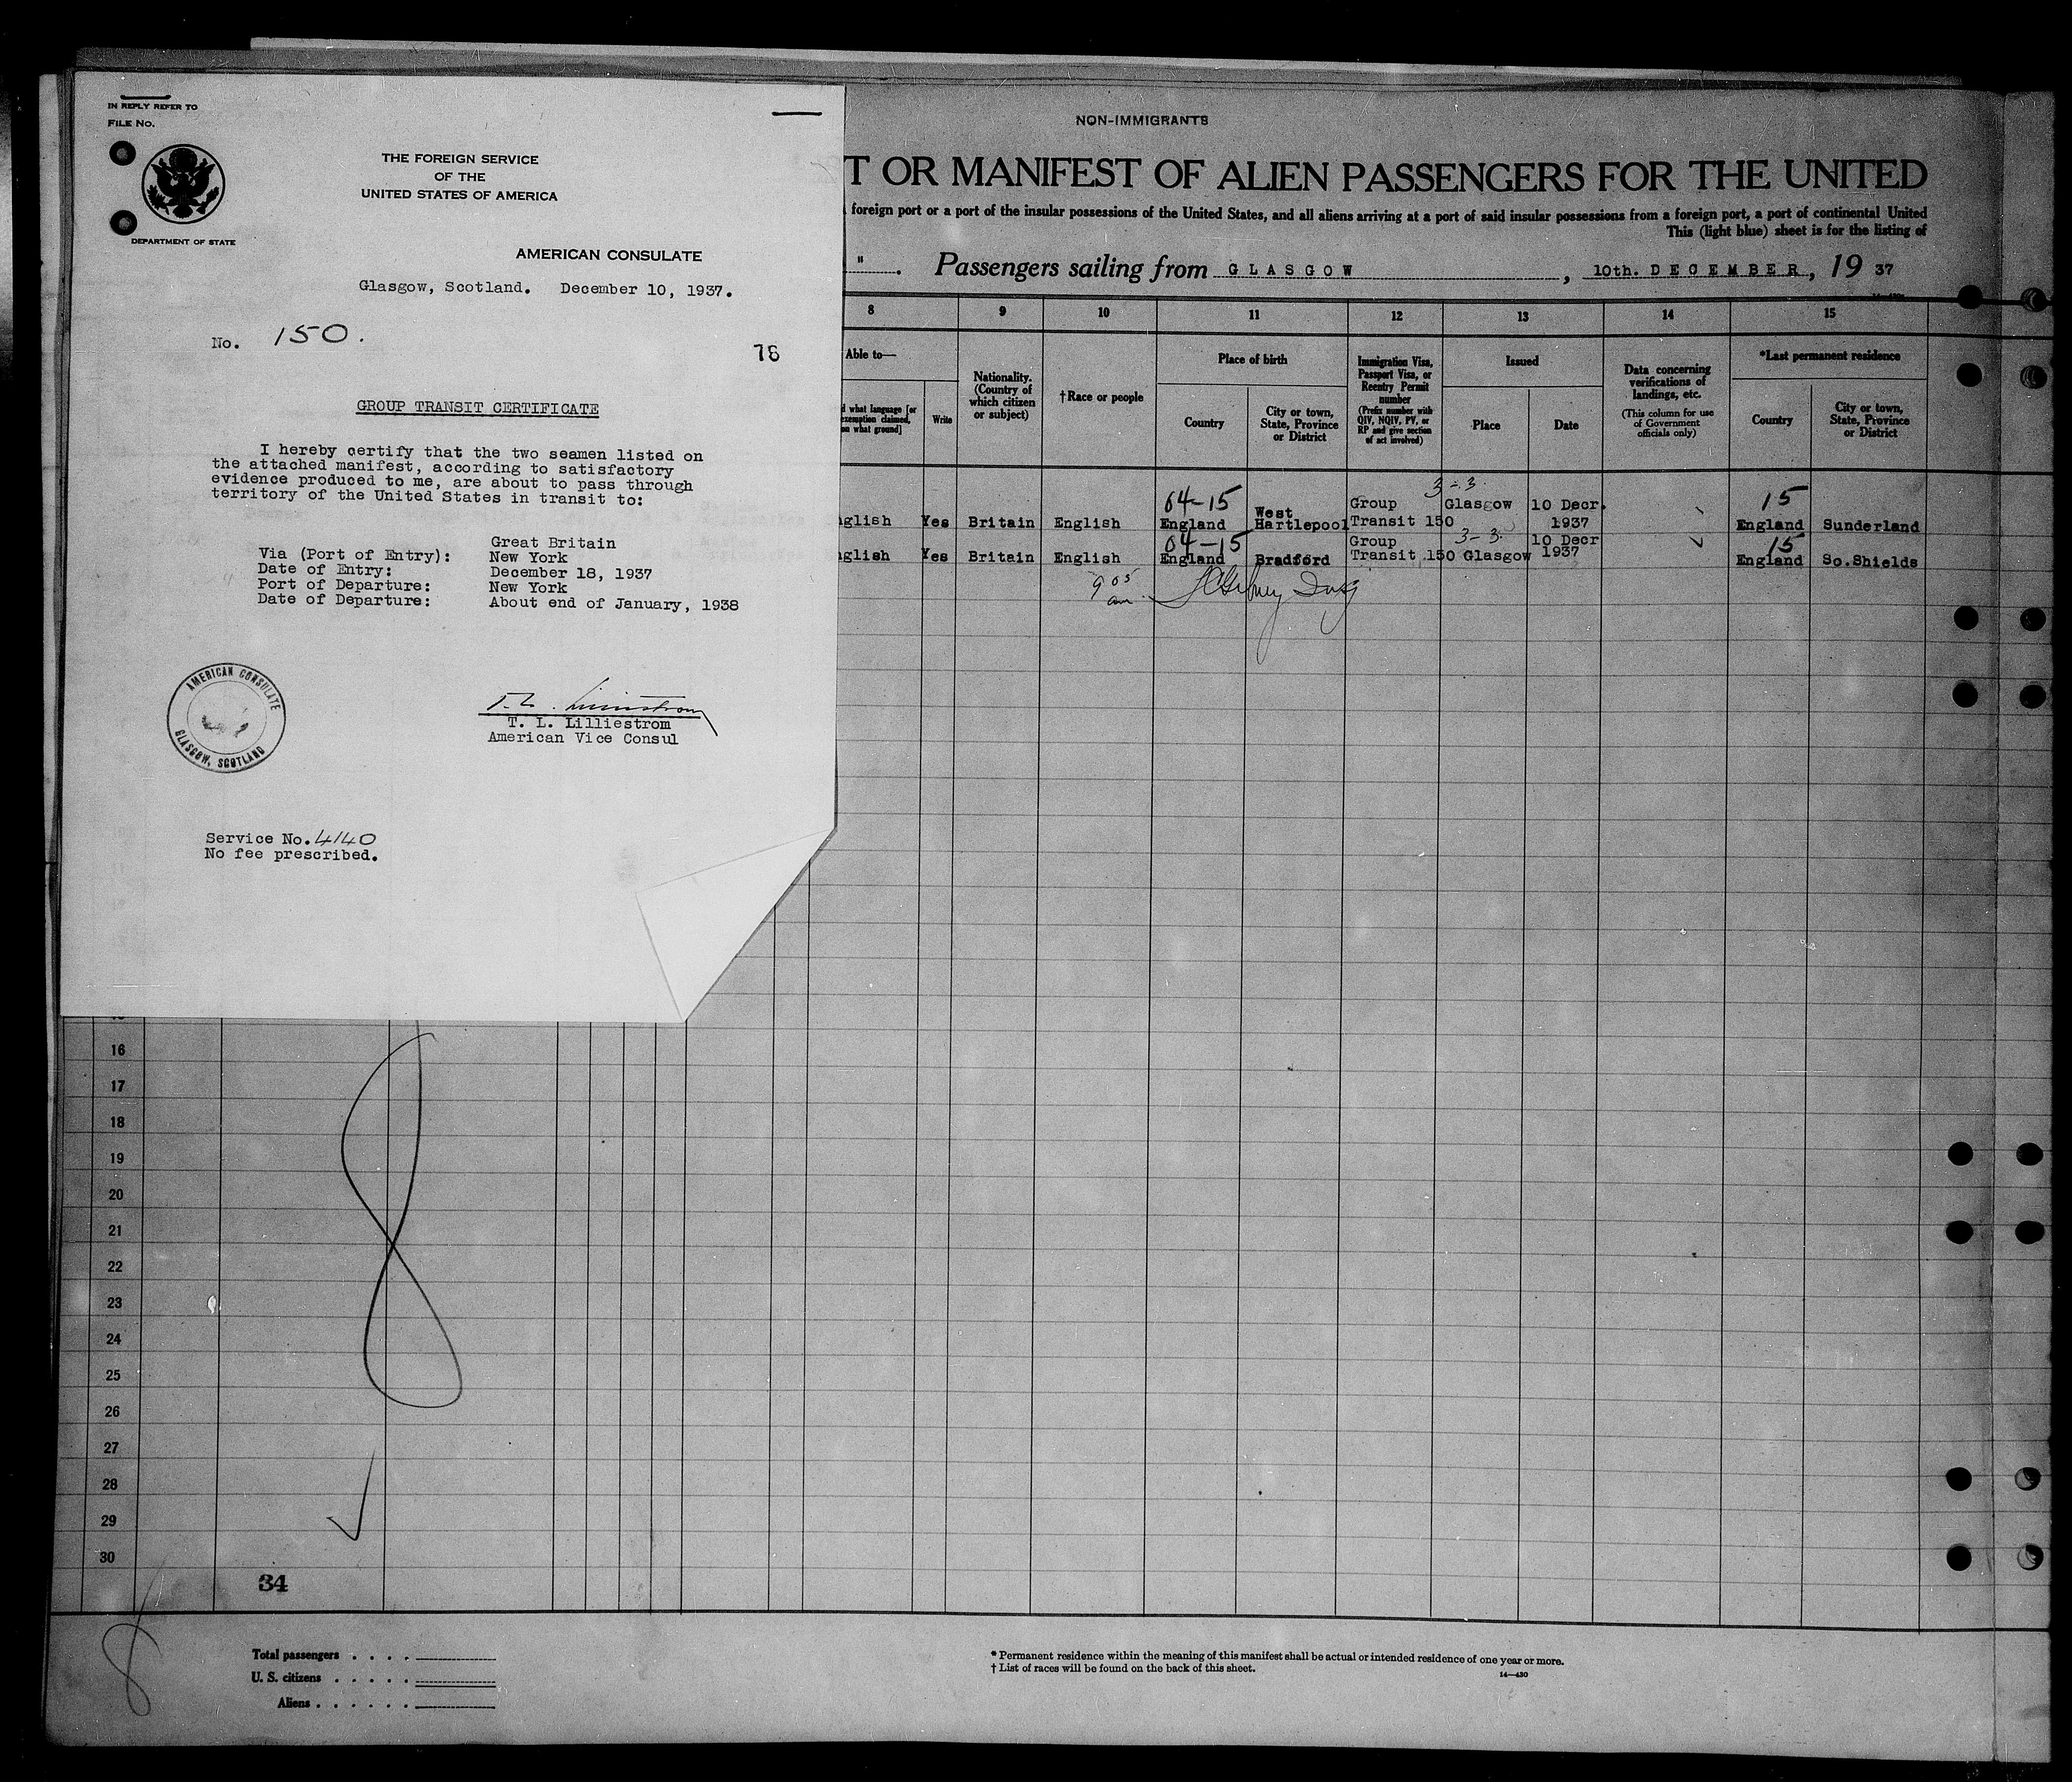 IN REPLY REFER TO
FILE NO.
THE FOREIGN SERVICE
OF THE
UNITED STATES OF AMERICA
DEPARTMENT OF STATE
AMERICAN CONSULATE
Glasgow, Scotland. December 10, 1937.
No. 150.
78
GROUP TRANSIT CERTIFICATE
I hereby certify that the two seamen listed on
the attached manifest, according to satisfactory
evidence produced to me, are about to pass through
territory of the United States in transit to:
Great Britain
Via (Port of Entry): New York
Date of Entry: December 18, 1937
Port of Departure: New York
Date of Departure: About end of January, 1938
AMERICAN CONSULATE
GLASGOW, SCOTLAND
T. L. Lilliestrom
American Vice Consul
Service No. 4140
No fee prescribed.
NON-IMMIGRANTS
T OR MANIFEST OF ALIEN PASSENGERS FOR THE UNITED
foreign port or a port of the insular possessions of the United States, and all aliens arriving at a port of said insular possessions from a foreign port, a port of continental United
This (light blue) sheet is for the listing of
" . Passengers sailing from GLASGOW , 10th. DECEMBER , 19 37
8 9 10 11 12 13 14 15
Able to—
d what language [or
exemption claimed,
on what ground]
Write
Nationality.
(Country of
which citizen
or subject)
†Race or people
Place of birth
Country
City or town,
State, Province
or District
Immigration Visa,
Passport Visa, or
Reentry Permit
number
(Prefix number with
QIV, NQIV, PV, or
RP and give section
of act involved)
Issued
Place
Date
Data concerning
verifications of
landings, etc.
(This column for use
of Government
officials only)
*Last permanent residence
Country
City or town,
State, Province
or District
3-3.
04-15 15
nglish Yes Britain English England West Hartlepool Group Transit 150 Glasgow 10 Decr. 1937 England Sunderland
04-15 3-3 15
nglish Yes Britain English England Bradford Group Transit 150 Glasgow 10 Decr 1937 England So.Shields
9 05
am
16
17
18
19
20
21
22
23
24
25
26
27
28
29
30
34
Total passengers . . . .
U. S. citizens . . . . .
Aliens . . . . . .
* Permanent residence within the meaning of this manifest shall be actual or intended residence of one year or more.
† List of races will be found on the back of this sheet.
14—430